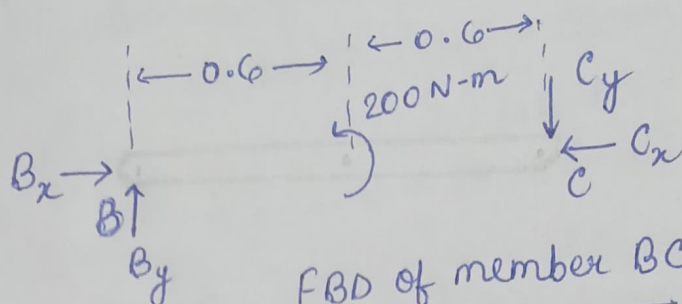 0.6 0.6
200 N-m
Cy
Bx Cx
B C
By
FBD of member BC